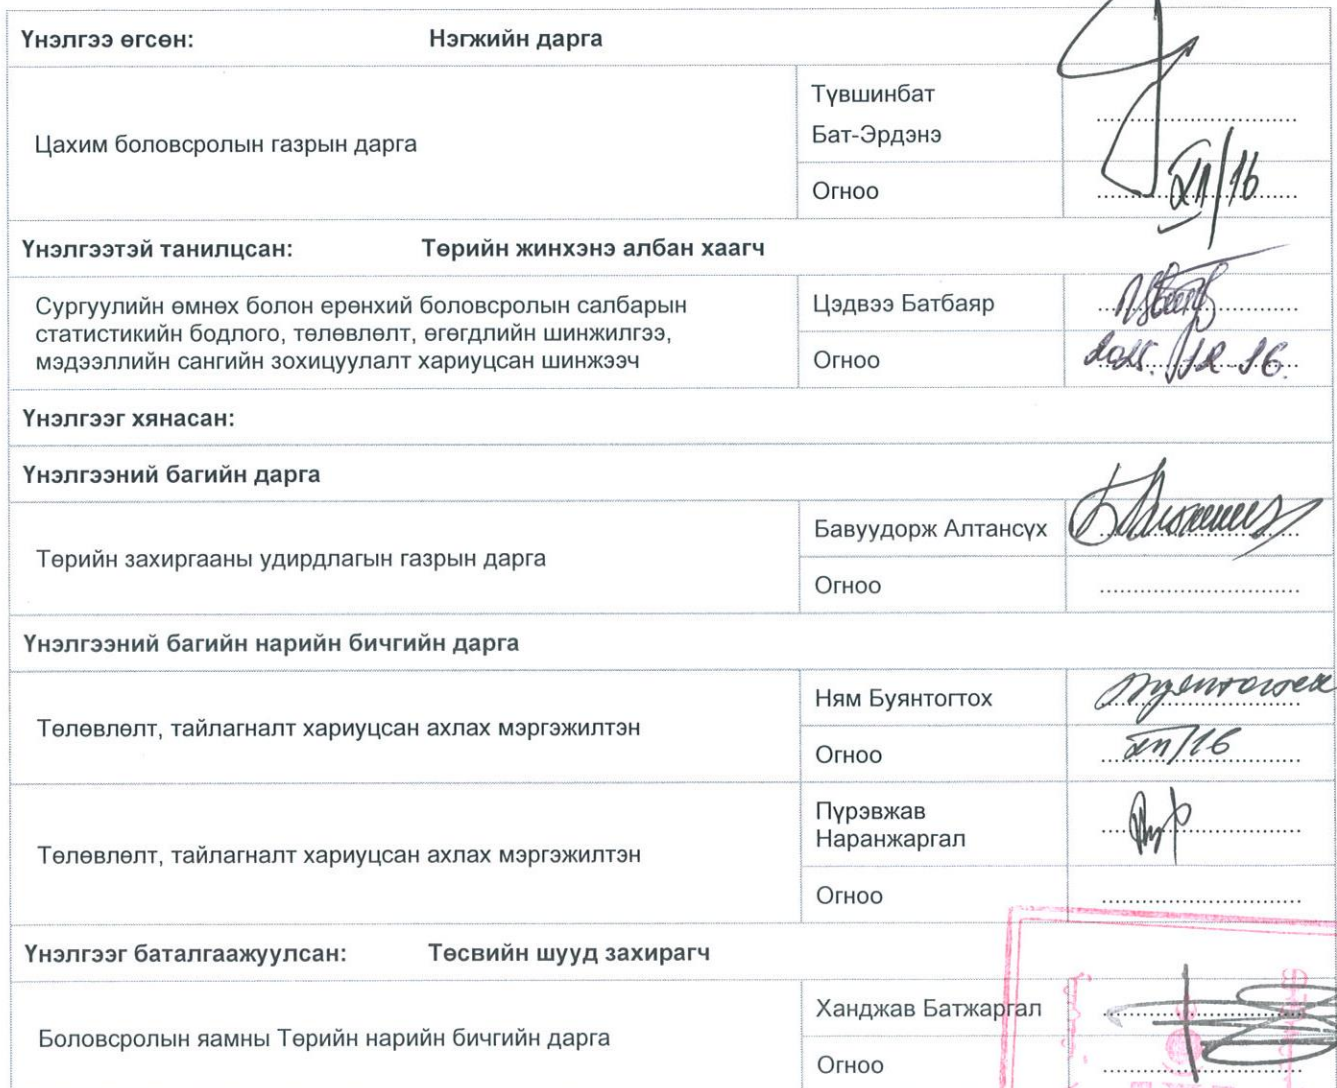 Үнэлгээ өгсөн: Нэгжийн дарга
Цахим боловсролын газрын дарга
Түвшинбат
Бат-Эрдэнэ
Огноо
XII/16
Үнэлгээтэй танилцсан: Төрийн жинхэнэ албан хаагч
Сургуулийн өмнөх болон ерөнхий боловсролын салбарын
статистикийн бодлого, төлөвлөлт, өгөгдлийн шинжилгээ,
мэдээллийн сангийн зохицуулалт хариуцсан шинжээч
Цэдвээ Батбаяр
Огноо
2025. 12. 16.
Үнэлгээг хянасан:
Үнэлгээний багийн дарга
Төрийн захиргааны удирдлагын газрын дарга
Бавуудорж Алтансүх
Огноо
Үнэлгээний багийн нарийн бичгийн дарга
Төлөвлөлт, тайлагналт хариуцсан ахлах мэргэжилтэн
Ням Буянтогтох
Огноо
XII/16
Төлөвлөлт, тайлагналт хариуцсан ахлах мэргэжилтэн
Пүрэвжав
Наранжаргал
Огноо
Үнэлгээг баталгаажуулсан: Төсвийн шууд захирагч
Боловсролын яамны Төрийн нарийн бичгийн дарга
Ханджав Батжаргал
Огноо